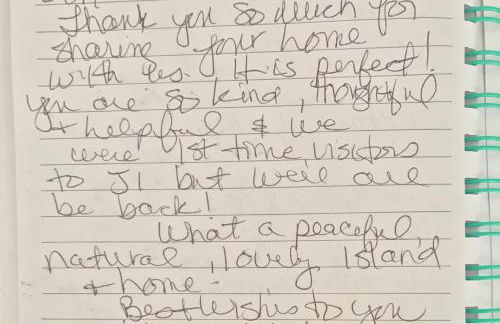 Thank you so much for
sharing your home
with us. It is perfect!
you are so kind, thoughtful
+ helpful & we
were 1st time visitors
to JI but we'll are
be back!
What a peaceful,
natural, lovely Island
+ home.
Best wishes to you